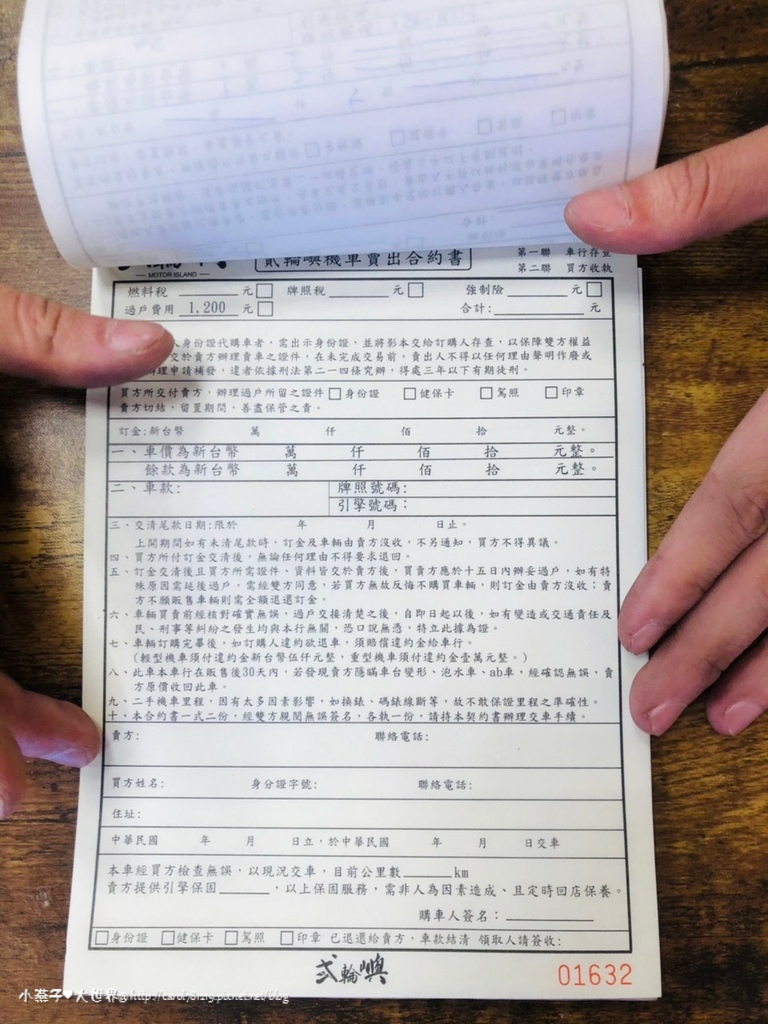 MOTOR ISLAND
貳輪嶼機車賣出合約書
第一聯 車行存查
第二聯 買方收執
燃料稅 元 牌照稅 元 強制險 元
過戶費用 1,200 元 合計: 元
身份證代購車者,需出示身份證,並將影本交給訂購人存查,以保障雙方權益
交於貴方辦理賣車之證件,在未完成交易前,賣出人不得以任何理由聲明作廢或
理申請補發,違者依據刑法第二一四條究辦,得處三年以下有期徒刑。
買方所交付賣方,辦理過戶所留之證件 身份證 健保卡 駕照 印章
賣方切結,留置期間,善盡保管之責。
訂金:新台幣 萬 仟 佰 拾 元整。
一、車價為新台幣 萬 仟 佰 拾 元整。
餘款為新台幣 萬 仟 佰 拾 元整。
二、車款: 牌照號碼:
引擎號碼:
三、交清尾款日期:限於 年 月 日止。
上開期間如有未清尾款時,訂金及車輛由賣方沒收,不另通知,買方不得異議。
四、買方所付訂金交清後,無論任何理由不得要求退回。
五、訂金交清後且買方所需證件、資料皆交於賣方後,買賣方應於十五日內辦妥過戶,如有特
殊原因需延後過戶,需經雙方同意,若買方無故反悔不購買車輛,則訂金由賣方沒收;賣
方不願販售車輛則需全額退還訂金。
六、車輛買賣前經核對確實無誤,過戶交接清楚之後,自即日起以後,如有變造或交通責任及
民、刑事等糾紛之發生均與本行無關,恐口說無憑,特立此據為證。
七、車輛訂購完畢後,如訂購人違約欲退車,須賠償違約金給車行。
(輕型機車須付違約金新台幣伍仟元整,重型機車須付違約金壹萬元整。)
八、此車本車行在販售後30天內,若發現賣方隱瞞車台變形、泡水車、ab車,經確認無誤,賣
方原價收回此車。
九、二手機車里程,因有太多因素影響,如換錶、碼錶線斷等,故不敢保證里程之準確性。
十、本合約書一式二份,經雙方親閱無誤簽名,各執一份,請持本契約書辦理交車手續。
賣方: 聯絡電話:
買方姓名: 身分證字號: 聯絡電話:
住址:
中華民國 年 月 日立,於中華民國 年 月 日交車
本車經買方檢查無誤,以現況交車,目前公里數 km
賣方提供引擎保固 ,以上保固服務,需非人為因素造成、且定時回店保養。
購車人簽名:
身份證 健保卡 駕照 印章 已退還給賣方,車款結清 領取人請簽收:
貳輪嶼
01632
小燕子♥大世界@http://carol